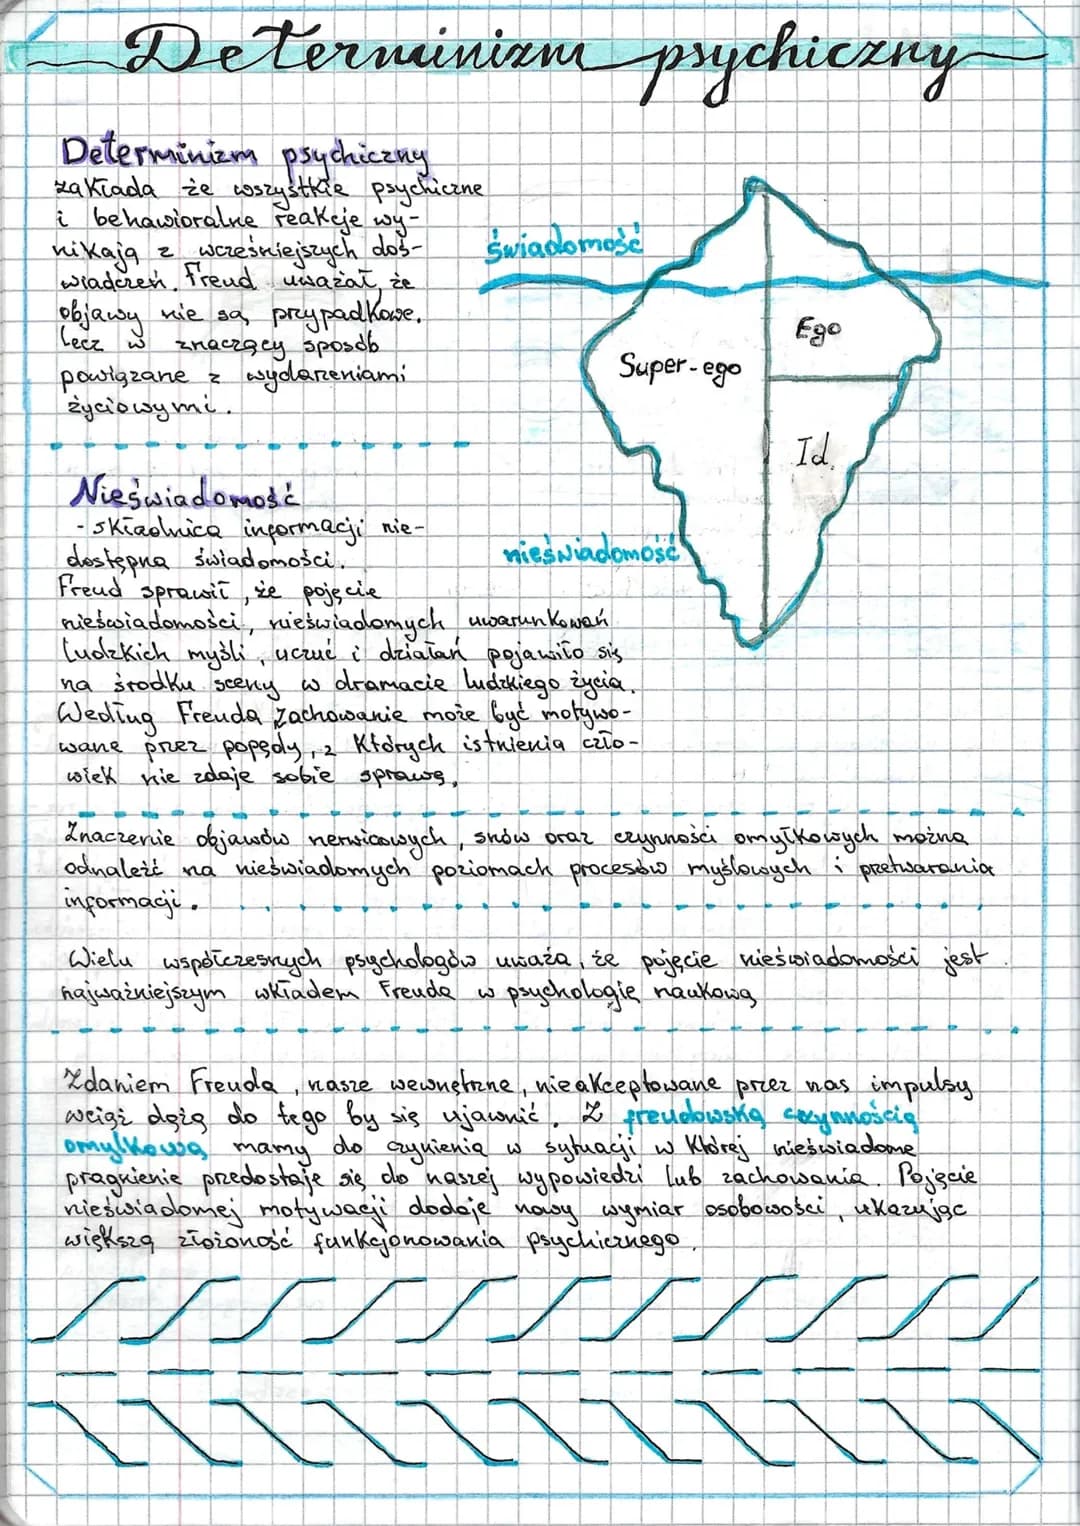 Determinizm psychiczny
Determinizm psychiczny
zakłada że wszystkie psychiczne
i behawioralne reakcje wy-
nikają z wcześniejszych doś-
wiadczeń. Freud uważał, że
objawy nie są przypadkowe,
lecz w znaczący sposób
powiązane z wydarzeniami
życiowymi.
świadomość
Ego
Super-ego
Id.
nieświadomość
Nieświadomość
- składnica informacji nie-
dostępna świadomości.
Freud sprawił, że pojęcie
nieświadomości, nieświadomych uwarunkowań
ludzkich myśli, uczuć i działań pojawiło się
na środku sceny w dramacie ludzkiego życia.
Według Freuda zachowanie może być motywo-
wane przez popędy, z których istnienia czło-
wiek nie zdaje sobie sprawę,
Znaczenie objawów nerwicowych, snów oraz czynności omyłkowych można
odnaleźć na nieświadomych poziomach procesów myślowych i przetwarania
informacji.
Wielu współczesnych psychologów uważa, że pojęcie nieświadomości jest
najważniejszym wkładem Freuda w psychologię naukową
Zdaniem Freuda, nasze wewnętrzne, nieakceptowane przez nas impulsy
wciąż dążą do tego by się ujawnić. Z freudowską czynnością
omylkową mamy do czynienia w sytuacji w której nieświadome
pragnienie przedostaje się do naszej wypowiedzi lub zachowania. Pojęcie
nieświadomej motywacji dodaje nowy wymiar osobowości, ukazując
większą złożoność funkcjonowania psychicznego.